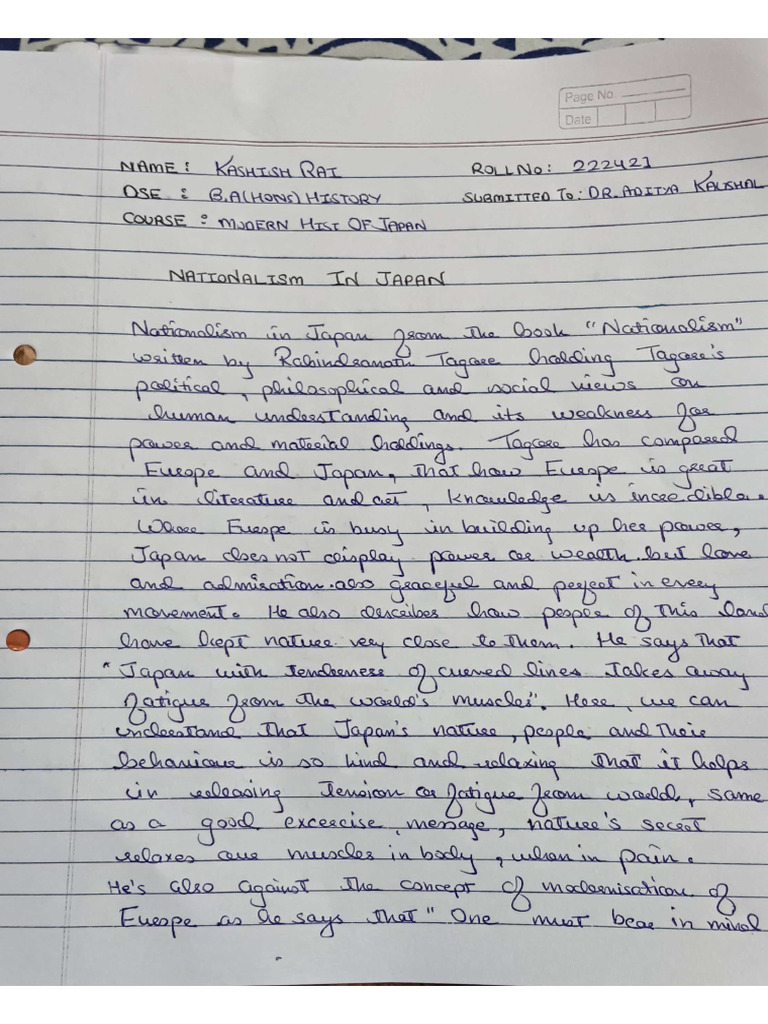 Page No.
Date
NAME: KASHISH RAI ROLL No: 222421
DSE: B.A(HONS) HISTORY SUBMITTED TO: DR. ADITYA KAUSHAL
COURSE: MODERN HIST OF JAPAN
NATIONALISM IN JAPAN
Nationalism in Japan from the book "Nationalism"
written by Rabindranath Tagore holding Tagore's
political, philosophical and social views on
human understanding and its weakness for
power and material holdings. Tagore has compared
Europe and Japan, that how Europe is great
in literature and art, knowledge is incredible.
Where Europe is busy in building up her power,
Japan does not display power or wealth but love
and admiration. also graceful and perfect in every
movement. He also describes how people of this land
have kept nature very close to them. He says that
"Japan with tenderness of curved lines takes away
fatigue from the world's muscles". Here, we can
understand that Japan's nature, people and their
behaviour is so kind and relaxing that it helps
in releasing tension or fatigue from world, same
as a good excercise, message, nature's secret
relaxes our muscles in body, when in pain.
He's also against the concept of modernisation of
Europe as he says that "One must bear in mind